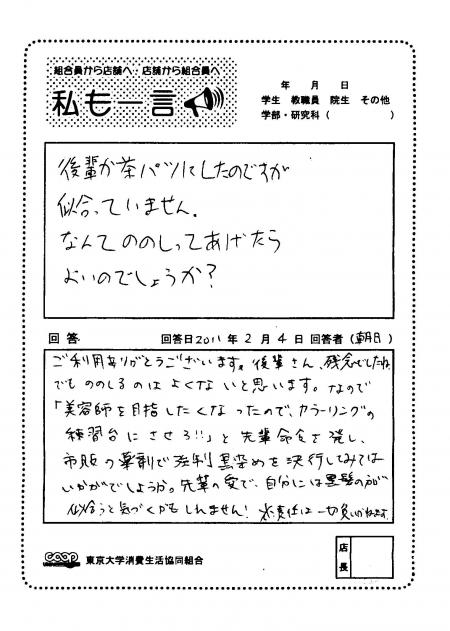 組合員から店舗へ・店舗から組合員へ
私も一言
年 月 日
学生 教職員 院生 その他
学部・研究科( )
後輩が茶パツにしたのですが
似合っていません。
なんてののしってあげたら
よいのでしょうか?
回答 回答日2011年2月4日 回答者(朝日)
ご利用ありがとうございます。後輩さん、残念でしたね。
でもののしるのはよくないと思います。なので
「美容師を目指したくなったので、カラーリングの
練習台にさせろ!!」と先輩命令を発し、
市販の薬剤で強制黒染めを決行してみては
いかがでしょうか。先輩の愛で、自分には黒髪の方が
似合うと気づくかもしれません! ※責任は一切負いかねます。
coop 東京大学消費生活協同組合
店長